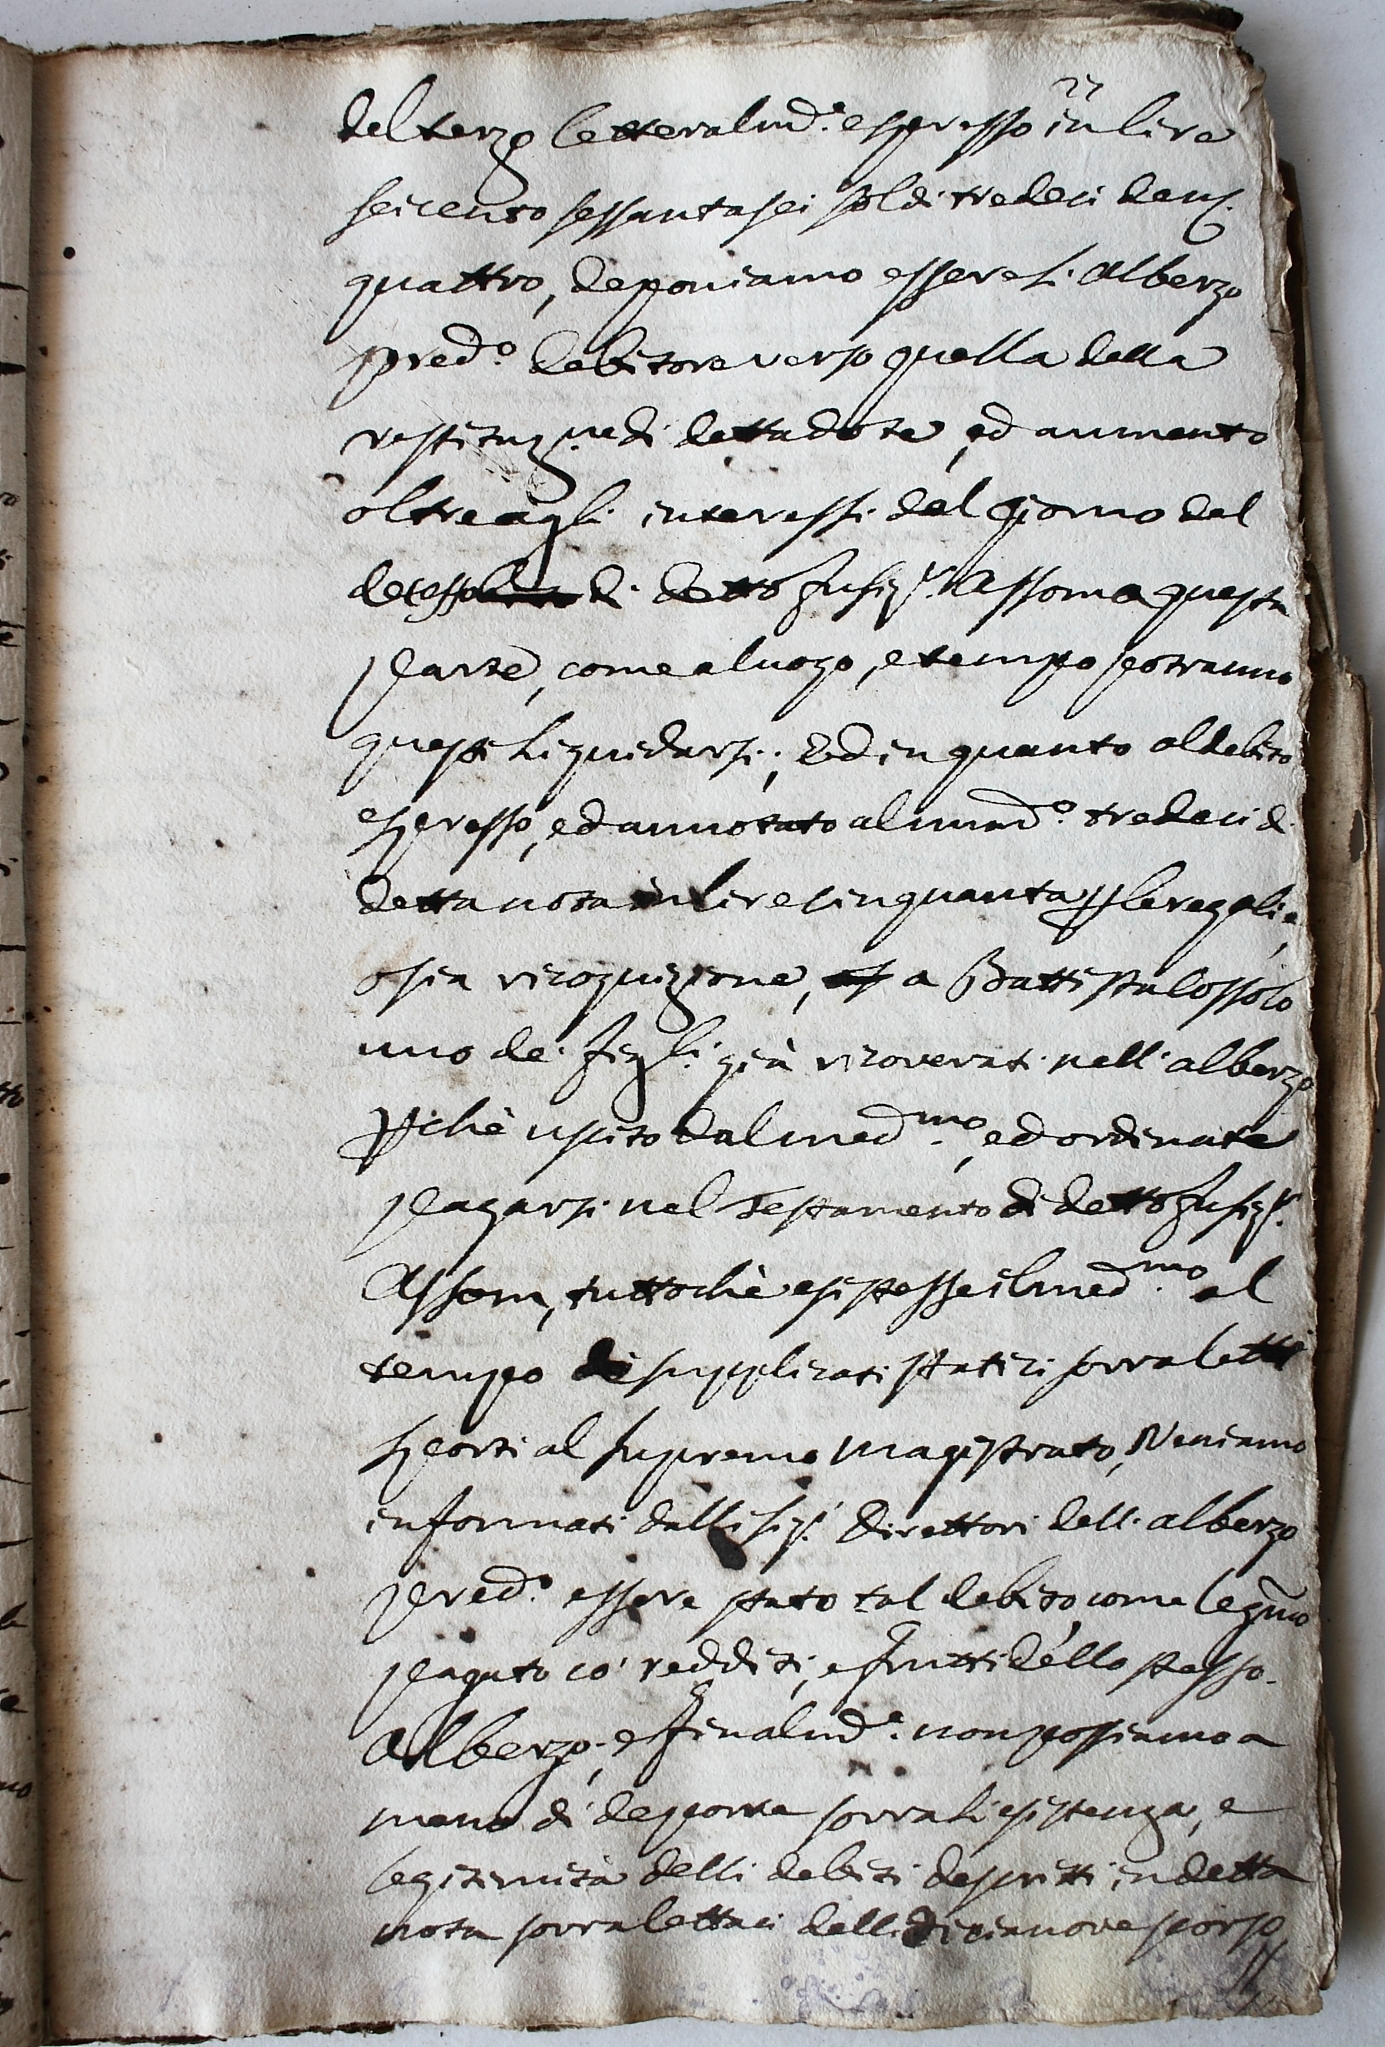 27
del terzo letteralmd.e espresso in lire
seicento sessantasei soldi tredeci den.
quattro, deponiamo essere l'Albergo
pred.o debitore verso quella della
restituz.ne di detta dote, ed aumento
oltre agli interessi dal giorno del
decesso di detto fu sig.r Assom a questa
parte, come a luogo, e tempo potranno
questi liquidarsi; Ed in quanto al debito
espresso, ed annotato al num.o tredeci di
detta nota in lire cinquanta per le regalie,
o sia ricognizione, a Battista Cossolo
uno de' figli già ricoverati nell'albergo
perchè uscito dal med.mo, ed ordinate
pagarsi nel Testamento di detto fu sig.r
Assom, tuttochè esistesse il med.mo al
tempo de supplicati statici sovraletti
sporti al supremo Magistrato, Veniamo
informati dalli sig.ri Direttori dell'albergo
pred.o essere stato tal debito come legmo
pagato co' redditi, e frutti dello stesso
Albergo; e finalmd.e non possiamo a
meno di deporre sovra l'esistenza, e
legitimità delli debiti descritti in detta
nota sovralettaci delli dicianove scorso